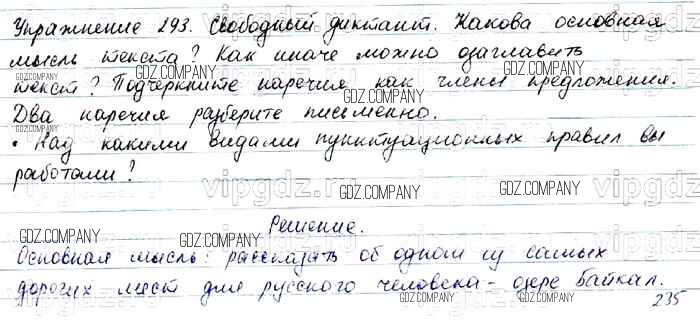 Упражнение 293. Свободный диктант. Какова основная
мысль текста? Как иначе можно озаглавить
текст? Подчеркните наречия как члены предложения.
Два наречия разберите письменно.
• Над какими видами пунктуационных правил вы
работали?
Решение.
Основная мысль: рассказать об одном из самых
дорогих мест для русского человека - озере Байкал.
235
GDZ.COMPANY
GDZ.COMPANY
GDZ.COMPANY
GDZ.COMPANY
GDZ.COMPANY
GDZ.COMPANY
GDZ.COMPANY
GDZ.COMPANY
GDZ.COMPANY
vipgdz.ru
vipgdz.ru
vipgdz.ru